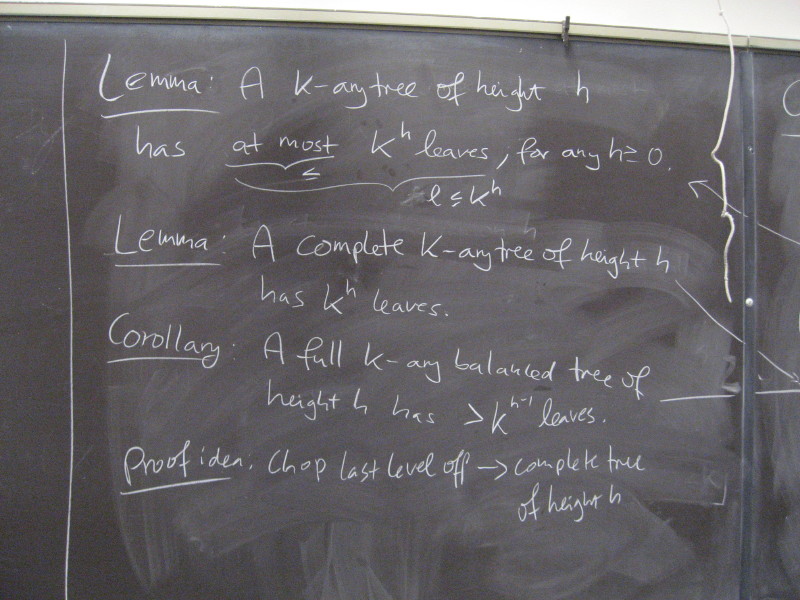 Lemma: A k-ary tree of height h
has at most k^h leaves, for any h ≥ 0.
≤
l ≤ k^h
Lemma: A complete k-ary tree of height h
has k^h leaves.
Corollary: A full k-ary balanced tree of
height h has > k^{h-1} leaves.
Proof idea: Chop last level off → complete tree
of height h